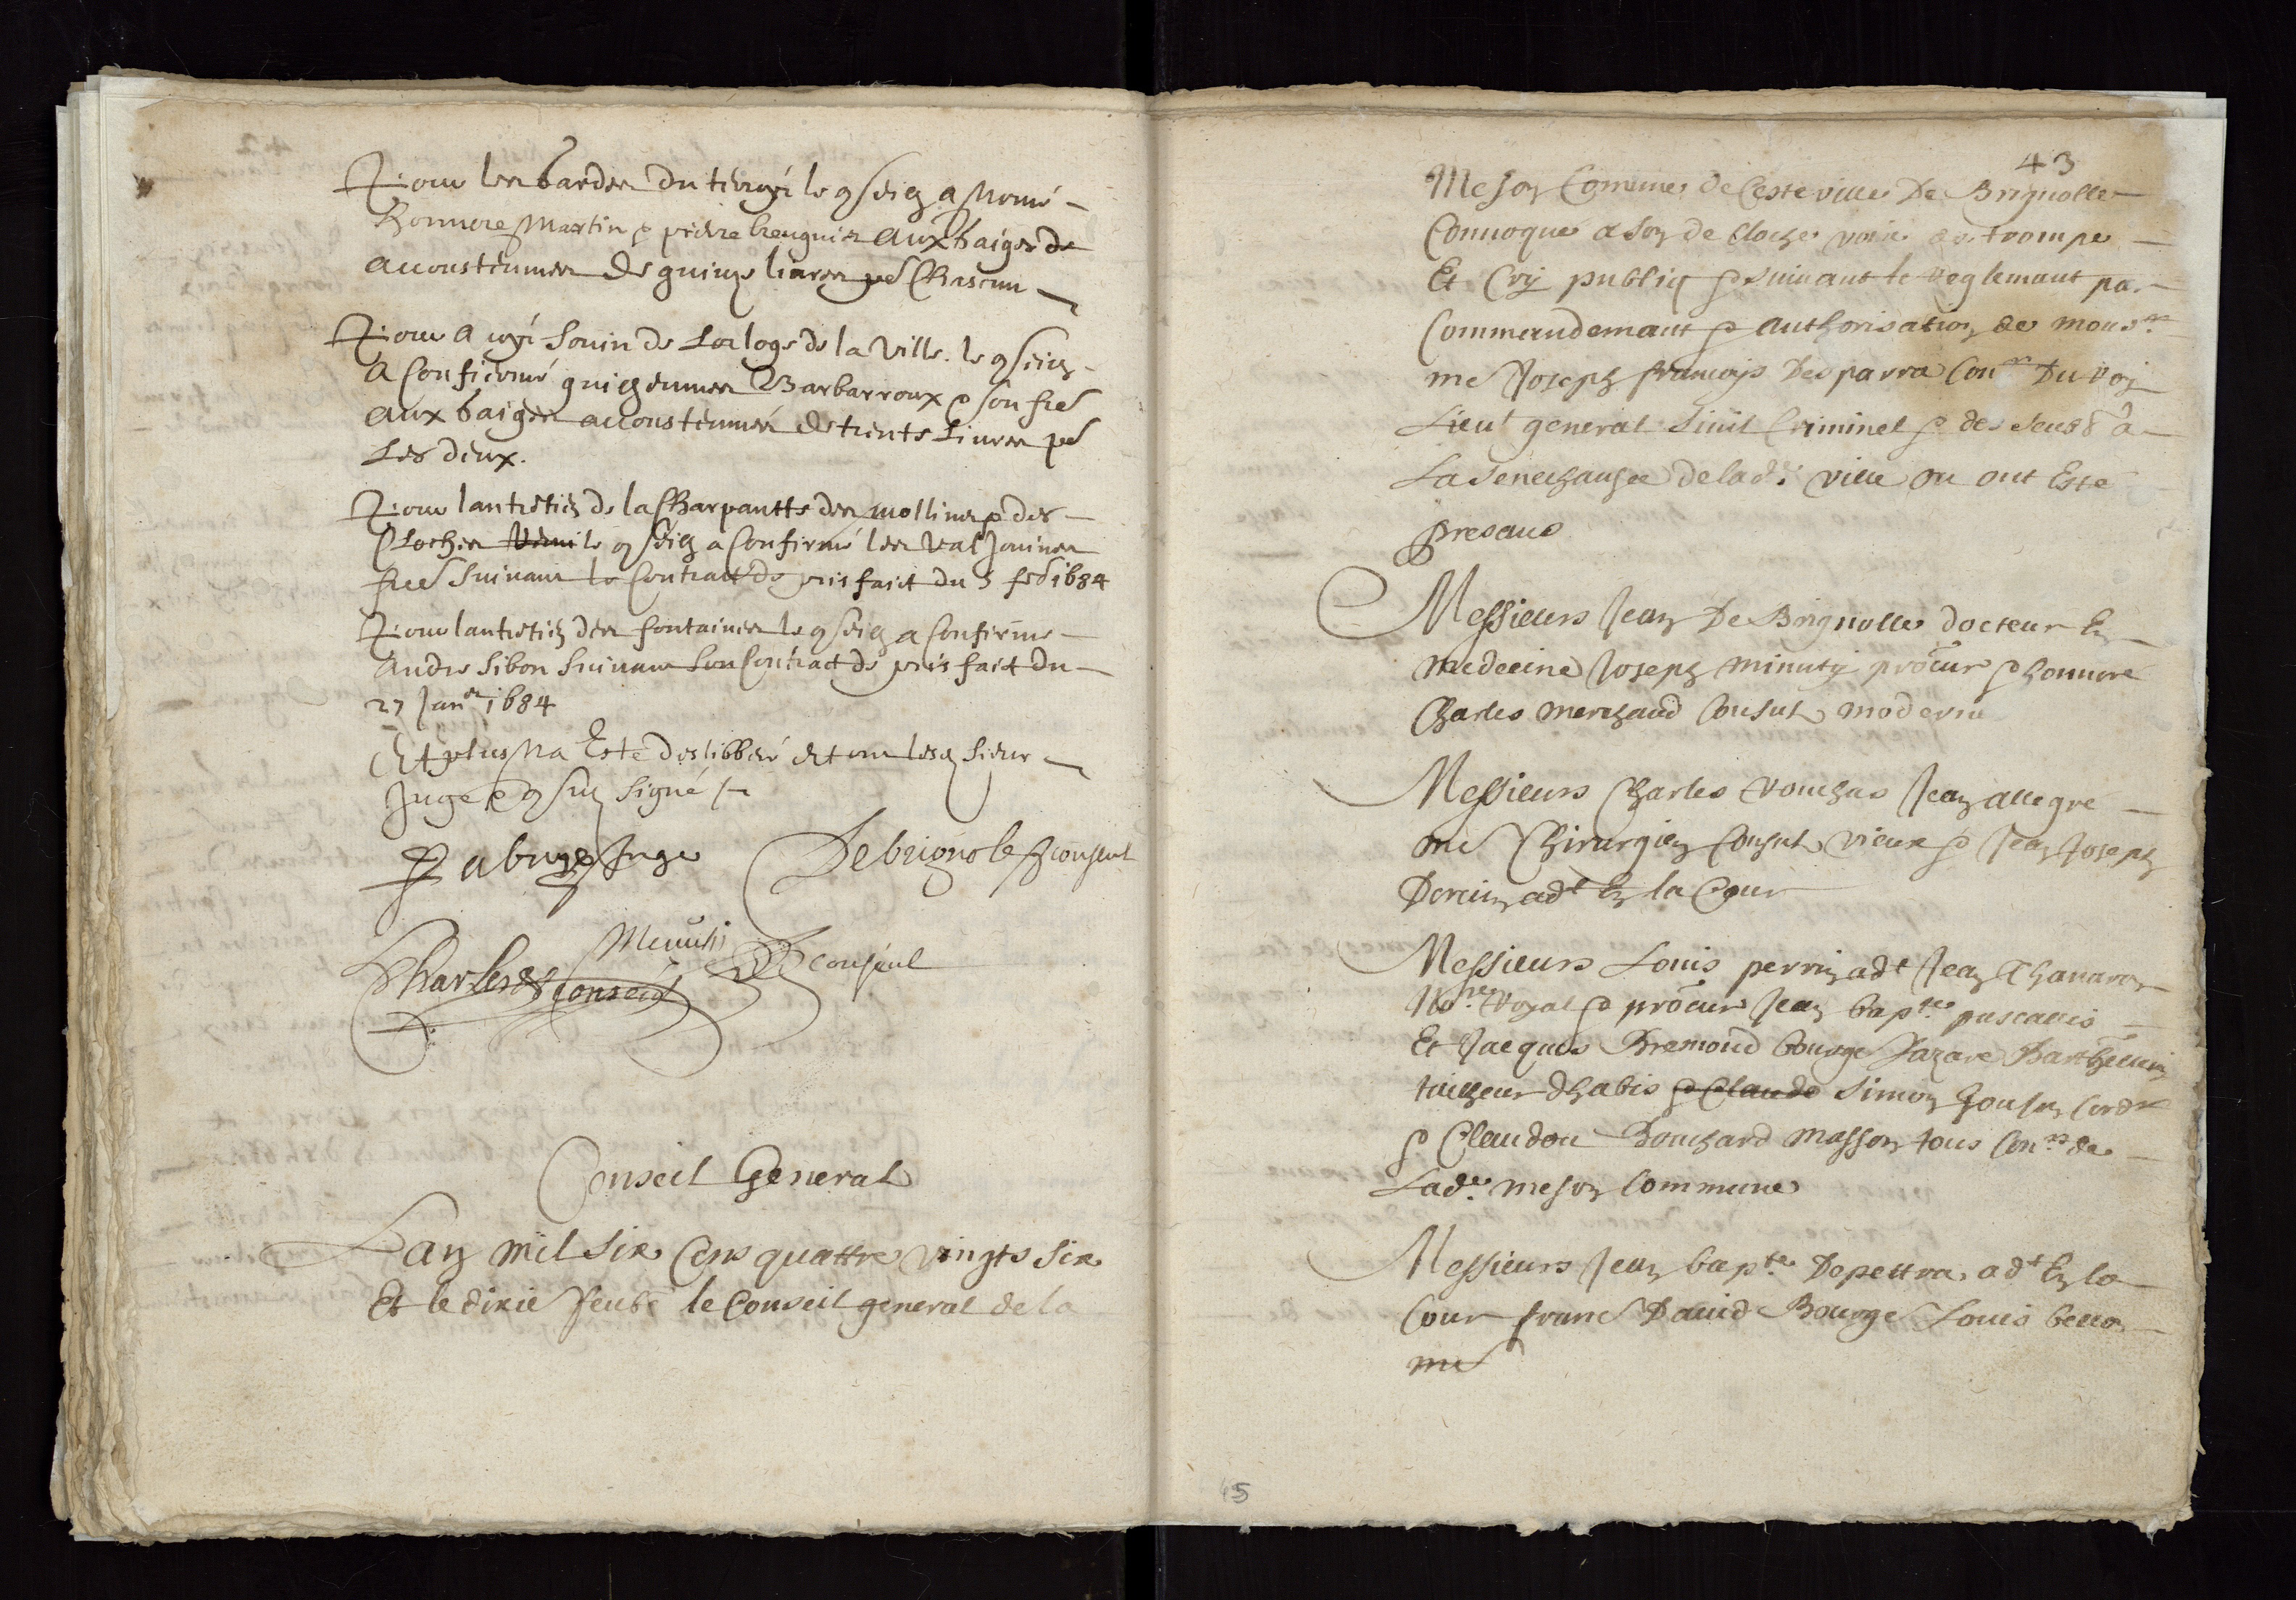 Pour les bardes du terroir le conseil a nomé
honnore Martin & pierre breugnier aux gaiges
accoustumes de quinze livres po. Chascun
Pour avoir souin de Lorloge de la Ville. le conseil
a Confirmé guilheumes Barbarroux & son fré
aux gaiges accoustumés de trente Livres po.
Les deux.
Pour lantretien de la Charpantte des mollins & des
Cloches le conseil a Confirmé les
freres suivant le Contract de pris faict du 5 1684
Pour lantretien des fontaines le conseil a Confirmé
andre sibon suivant son Contract de pris faict du
27 Janer 1684
Et plus na Esté deslibberé et ont lesd sieur
Juge & consuls signé
Juge Debrignole consul
Charles consul Minuti consul
Conseil General
Lan mil six Cens quattre vingts six
Et le dixie feubé le Conseil general de la
43
Meson Comune de Ceste ville De Brignolle
Convoqué a son de Cloche voix de trompe
Et Cry publiq & suivant le reglement par
Commandemant & authorisation de monsr
me Joseph françois Desparra Conr Du roy
Lieut general Sivil Criminel & des seus a
La senechaussee de lade ville ou ont Este
presans
Messieurs Jean De Brignolle docteur En
medecine Joseph minuty procur & honnore
Charles merchand Consuls modernes
Messieurs Charles rouchas Jean allegre
me Chirurgien Consuls vieux & Jean Joseph
adt En la Cour
Messieurs Louis perrin adt Jean Chanaron
Nore royal & procur Jean bapte pascalis
Et Jacques Bremond bourge Lazare Barthelemy
tailheur dhabis & Claude Simon cordr
& Claudou Bouchard masson tous Conrs de
Lade meson Commune
Messieurs Jean bapte Depettra adt En la
Cour franc David Bourge Louis bellon
me
45